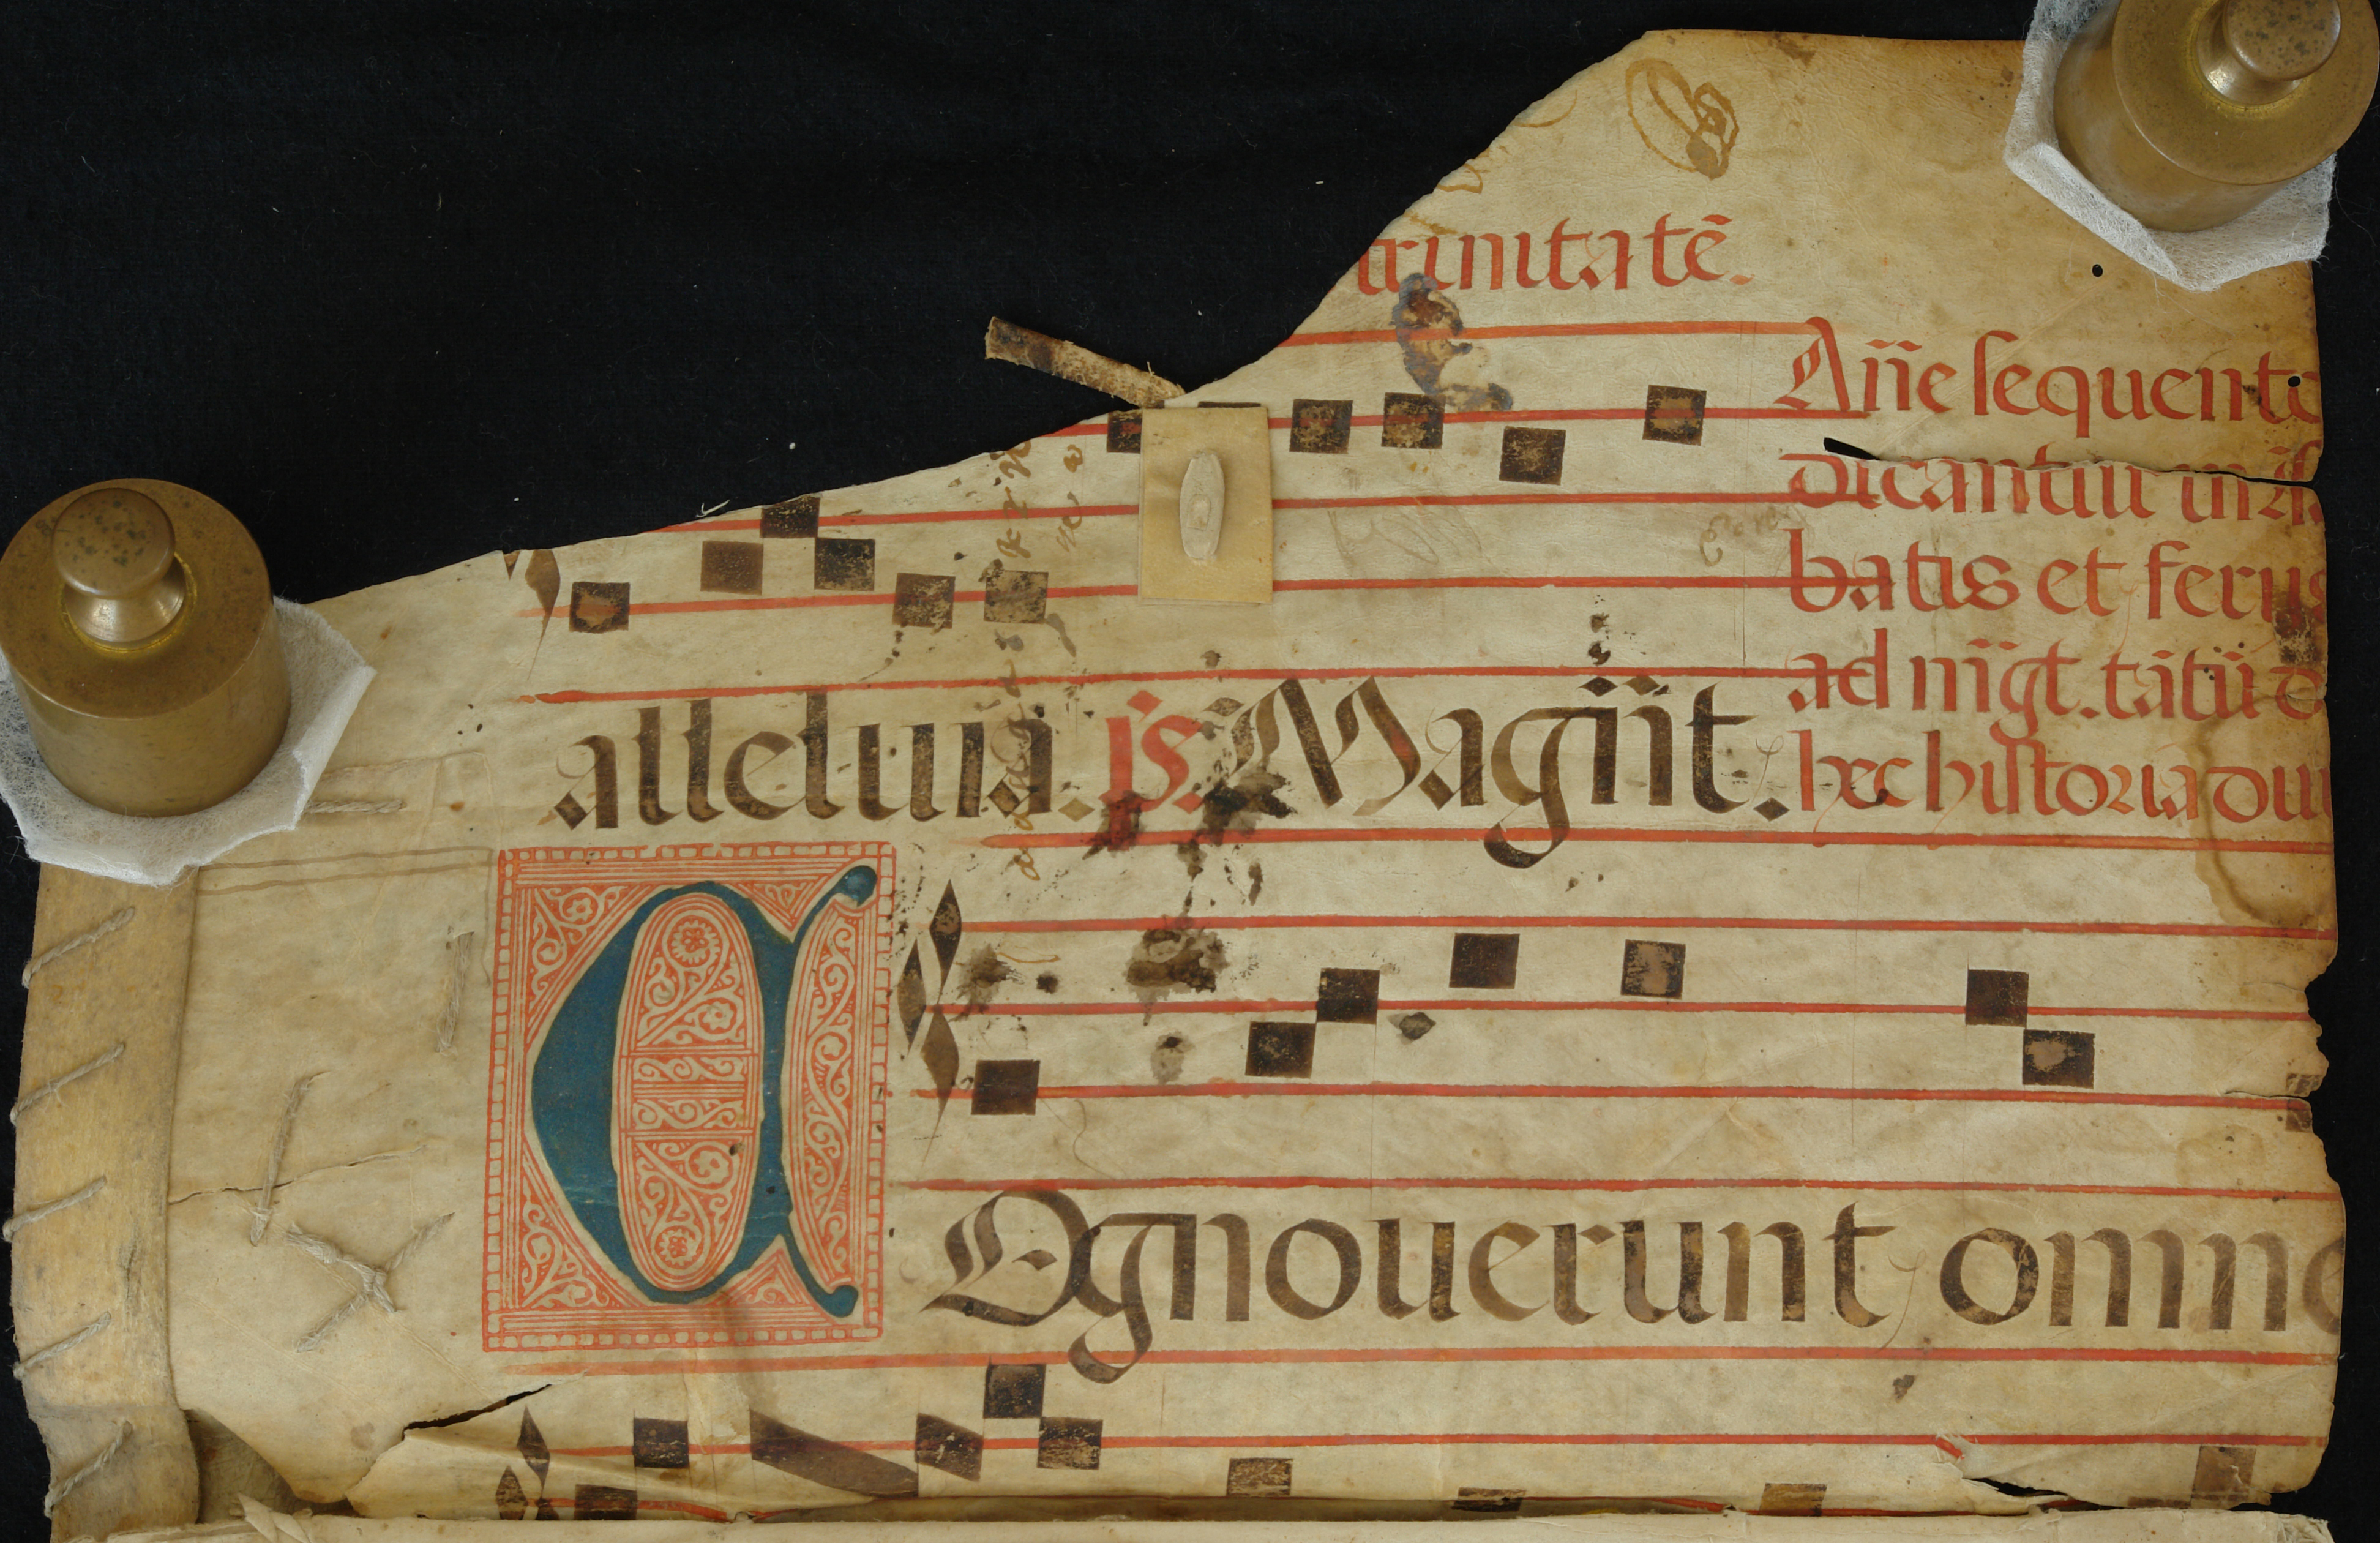 trinitatē.
Añe sequent
dicantur in
batis et ferijs
ad m̃gt. tãtũ d
hec historia dui
alleluia. ps. Magñt.
Cognouerunt omne